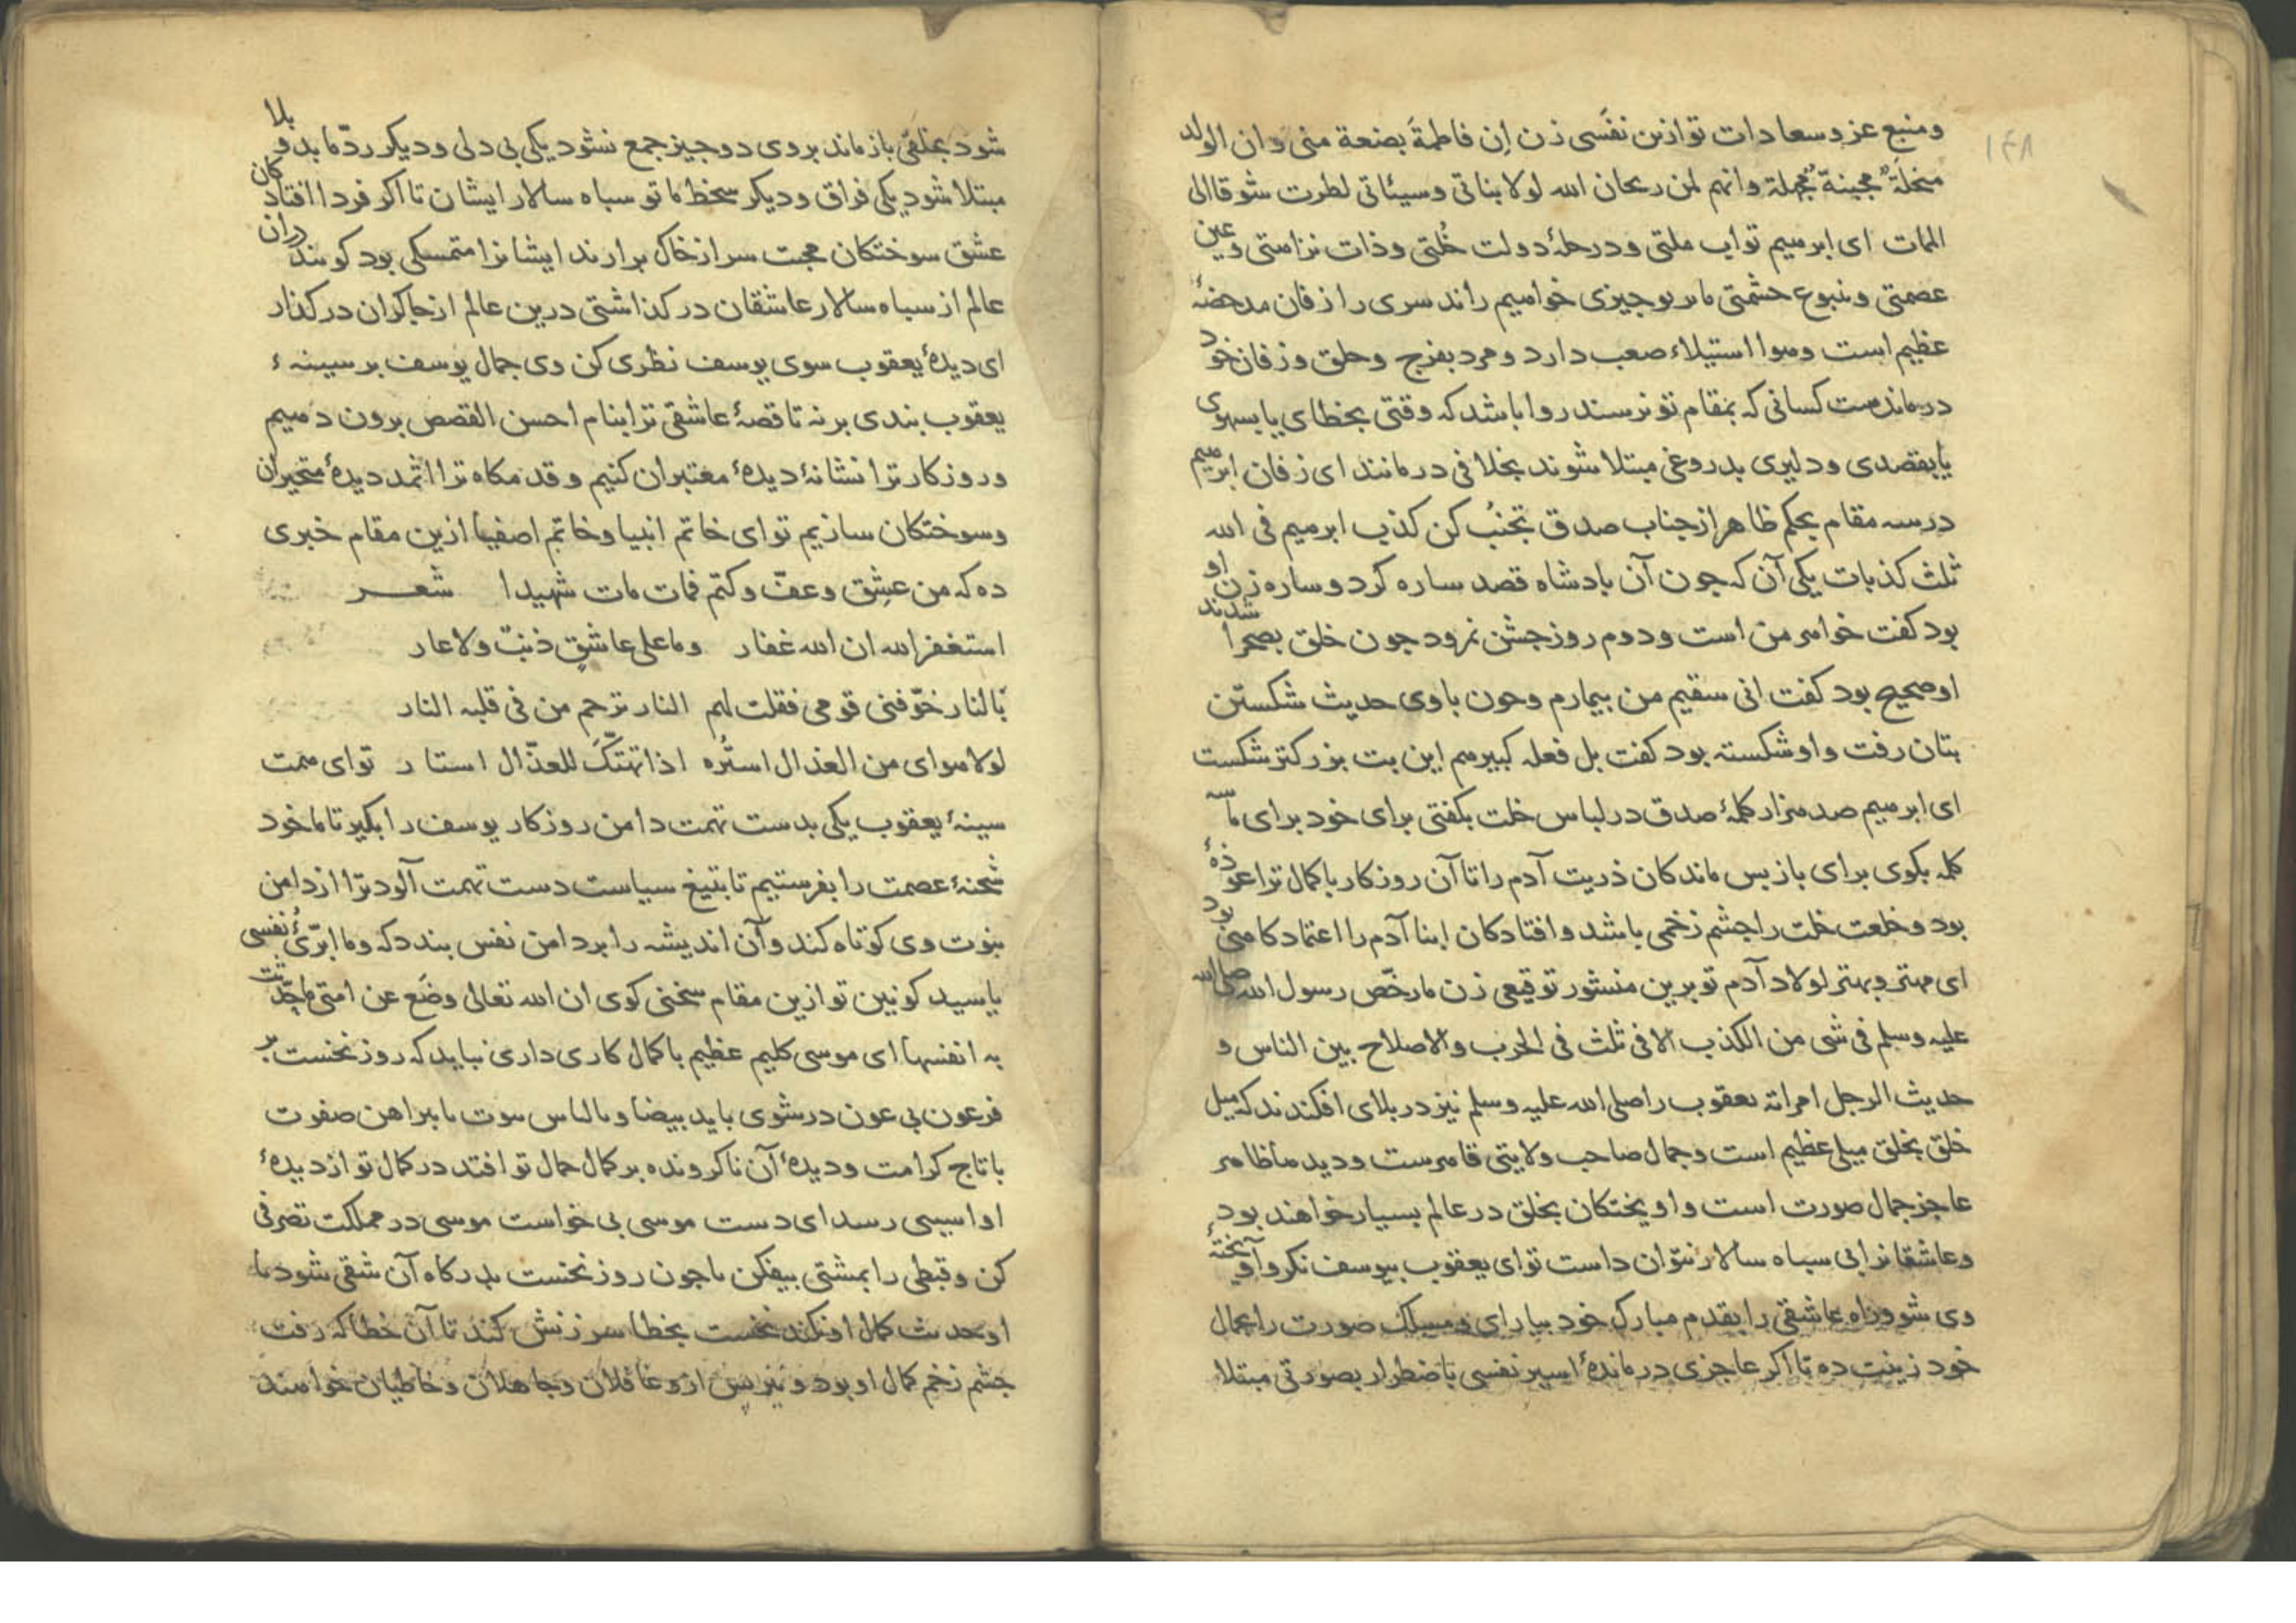 ۱۴۸
ومنبع عز وسعادات تو ازین نفسی زن إن فاطمة بضعة منی وان الولد
مبخلة مجبنة مجهلة وانهم لمن ریحان الله لولا بناتی وسیئاتی لطرت شوقا الی
الممات ای ابرهیم تو اب ملتی ودر حلهٔ دولت خُلتی وذات نزاهتی وعین
عصمتی وینبوع حشمتی ما بر تو چیزی خواهیم راند سری را زفان مدحضهٔ
عظیم است وهوا استیلاء صعب دارد ومرد بفرج وحلق وزفان خود
درمانده‌ست کسانی که بمقام تو نرسند روا باشد که وقتی بخطای یا بسهوی
یا بقصدی ودلیری بدروغی مبتلا شوند بخلافی درمانند ای زفان ابرهیم
در سه مقام بحکم ظاهر از جناب صدق تجنّب کن کذب ابرهیم فی الله
ثلث کذبات یکی آن که جون آن بادشاه قصد ساره کرد وساره زن او
بود کفت خواهر من است ودوم روز جشن نمرود جون خلق بصحرا شدند
او صحیح بود کفت انی سقیم من بیمارم وجون با وی حدیث شکستن
بتان رفت واو شکسته بود کفت بل فعله کبیرهم این بت بزرکتر شکست
ای ابرهیم صد هزار کلمهٔ صدق در لباس خلت بکفتی برای خود برای ما سه
کلمه بکوی برای بازبس ماندکان ذریت آدم را تا آن روزکار با کمال ترا عوذهٔ
بود وخلعت خلت را جشم زخمی باشد وافتادکان ابنا آدم را اعتمادکاهی بود
ای مهتر وبهتر اولاد آدم تو برین منشور توقیعی زن ما رخّص رسول الله صلی الله
علیه وسلم فی شی من الکذب الا فی ثلث فی الحرب والاصلاح بین الناس و
حدیث الرجل امراته یعقوب را صلی الله علیه وسلم نیز در بلای افکندند که میل
خلق بخلق میلی عظیم است وجمال صاحب ولایتی قاهرست ودیدها ظاهر
عاجز جمال صورت است واویختکان بخلق در عالم بسیار خواهند بود
وعاشقانرا بی سباه سالار نتوان داشت تو ای یعقوب بیوسف نکر وآویختهٔ
وی شو وراه عاشقی را بقدم مبارک خود بیارای ومسلک صورت را بجمال
خود زینت ده تا اکر عاجزی درماندهٔ اسیر نفسی باضطرار بصورتی مبتلا
شود بخلقی باز ماند بر وی دو جیز جمع نشود یکی بی دلی ودیکر ردّ ما بدو بلا
مبتلا شود یکی فراق ودیکر سخط ما تو سباه سالار ایشان تا اکر فردا افتادکان
عشق سوختکان محبت سر از خاک برارند ایشانرا متمسکی بود کویند در ان
عالم از سباه سالار عاشقان در کذاشتی درین عالم از جاکران در کذار
ای دیدهٔ یعقوب سوی یوسف نظری کن وی جمال یوسف بر سینهٔ
یعقوب بندی بر نه تا قصهٔ عاشقی ترا بنام احسن القصص برون دهیم
وروزکار ترا نشانهٔ دیدهٔ معتبران کنیم وقدمکاه ترا اثمد دیدهٔ متحیران
وسوختکان سازیم تو ای خاتم انبیا وخاتم اصفیا ازین مقام خبری
ده که من عشِق وعفّ وکتم فمات مات شهیدا شعـــر
استغفر الله ان الله غفار وما علی عاشقٍ ذنبٌ ولا عار
بالنار خوّفنی قومی فقلت لهم النار ترحم من فی قلبه النار
لولا هوای من العذال استُره اذا تهتّک للعذّال استار تو ای همت
سینهٔ یعقوب یکی بدست تهمت دامن روزکار یوسف را بکیر تا ما خود
شحنهٔ عصمت را بفرستیم تا بتیغ سیاست دست تهمت آلود ترا از دامن
نبوت وی کوتاه کند وآن اندیشه را بر دامن نفس بندد که وما ابرّئ نفسی
یا سید کونین تو ازین مقام سخنی کوی ان الله تعالی وضع عن امتی ما حدّثت
به انفسها ای موسی کلیم عظیم با کمال کاری داری نباید که روز نخست بر
فرعون بی عون در شوی با ید بیضا وبا لباس نبوت با براهن صفوت
با تاج کرامت ودیدهٔ آن ناکرونده بر کمال جمال تو افتد در کمال تو از دیدهٔ
او اسیبی رسد ای دست موسی بی خواست موسی در مملکت تصرفی
کن وقبطی را بمشتی بیفکن تا جون روز نخست بدرکاه آن شقی شود تا
او حدیث کمال او نکند نخست بخطا سرزنش کند تا آن خطا که رفت
جشم زخم کمال او بود ونیز بس ازو غافلان وجاهلان وخاطیان خواهند